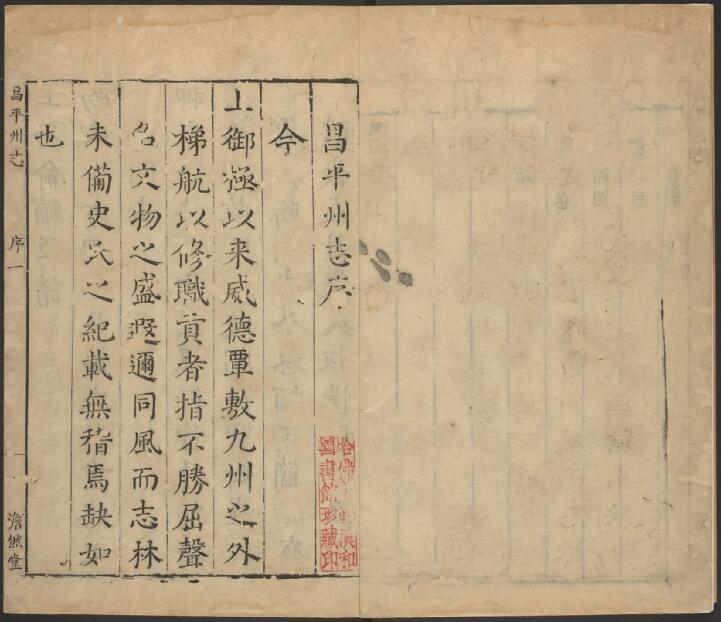 昌平州志序
今
上御極以来威德覃敷九州之外
梯航以修職貢者指不勝屈聲
名文物之盛遐邇同風而志林
未備史氏之紀載無稽焉缺如
也
昌平州志
序一
澹然堂
哈佛大學漢和
圖書館珍藏印